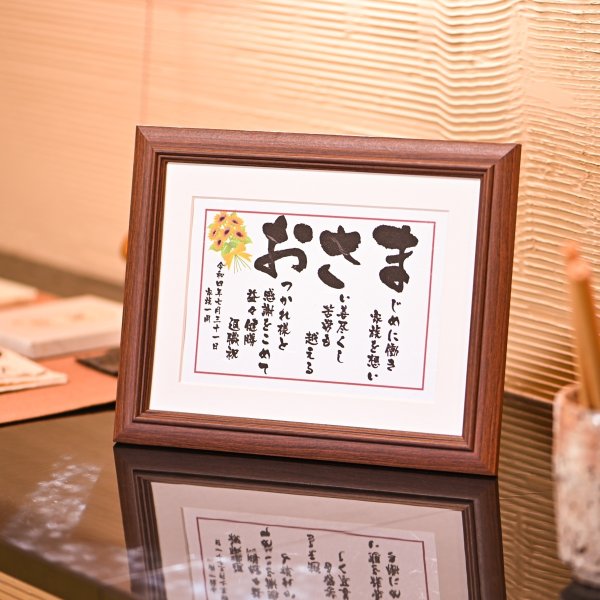 まじめに働き
家族を想い
さい善尽くし
苦労も
越える
おつかれ様と
感謝をこめて
益々健勝
退職祝
令和四年七月三十一日
家族一同